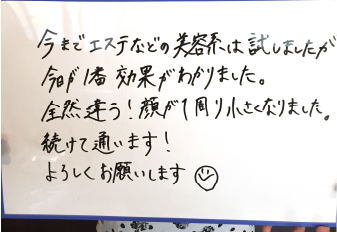 今までエステなどの美容系は試しましたが
今日が1番効果がわかりました。
全然違う!顔が1周り小さくなりました。
続けて通います!
よろしくお願いします☺